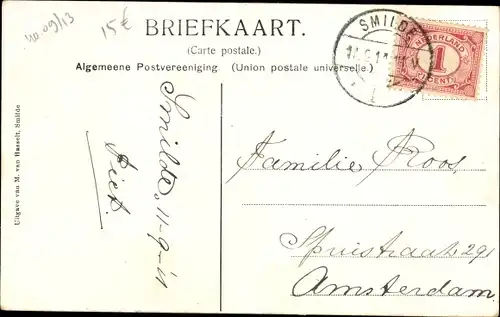 40 09/13
15€
BRIEFKAART.
(Carte postale.)
Algemeene Postvereeniging. (Union postale universelle.)
SMILDE
NEDERLAND
1
CENT
Smilde, 11-9-11
Piet.
Uitgave van M. van Hasselt, Smilde
Familie Roos.
Spuistraat 291
Amsterdam.